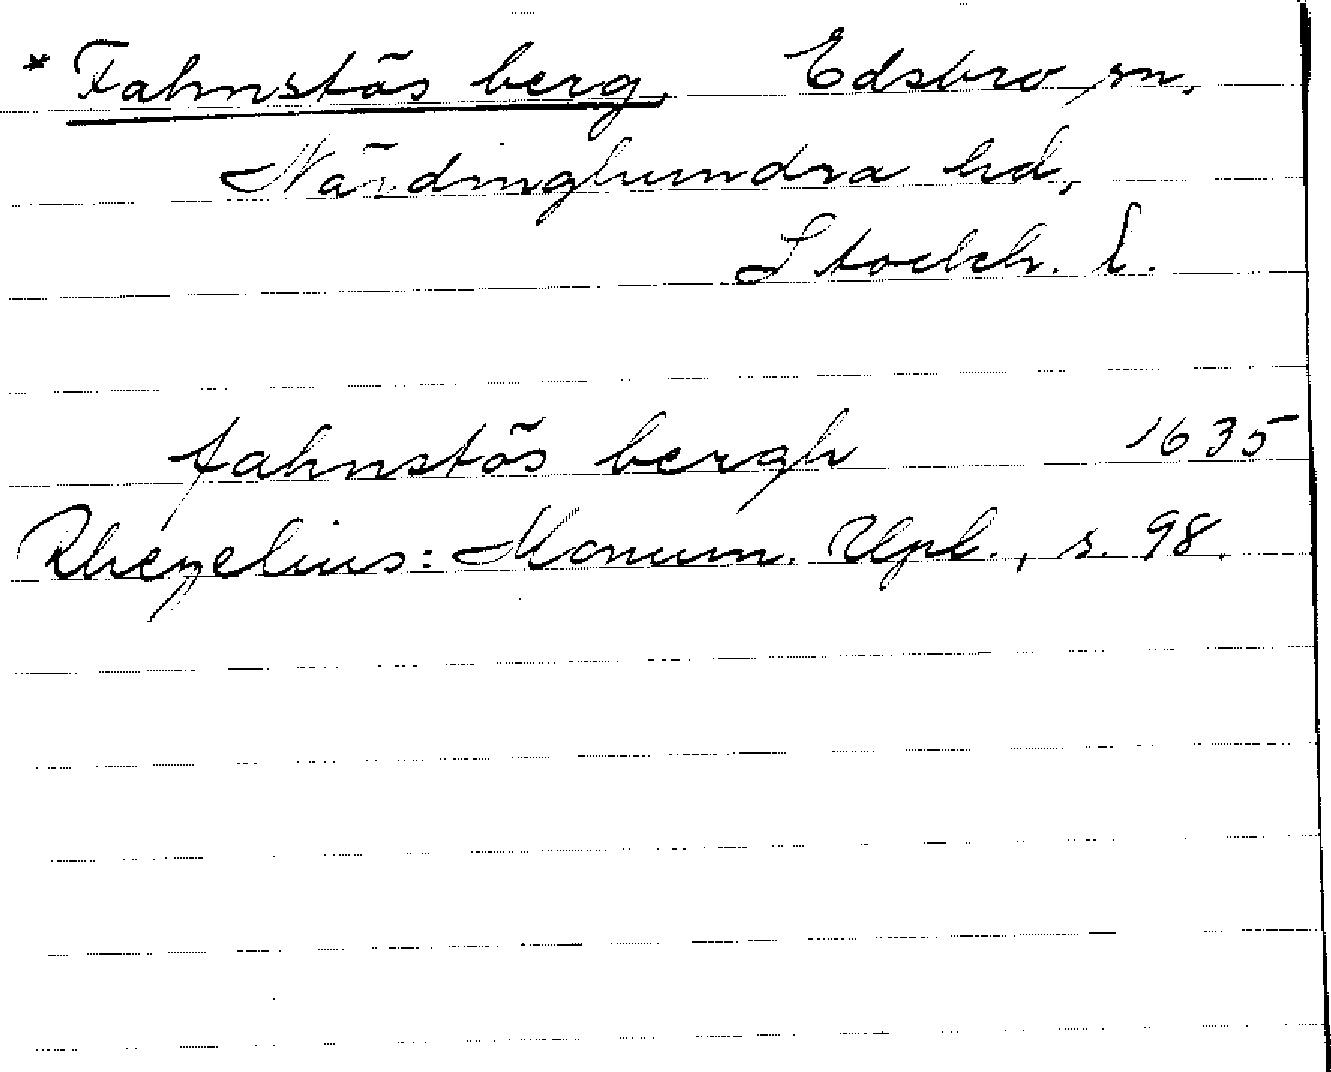 * Fahnstös berg, Edsbro sn,
Närdinghundra hd,
Stockh. l.
fahnstös bergh 1635
Rhezelius: Monum. Upl., s. 98.